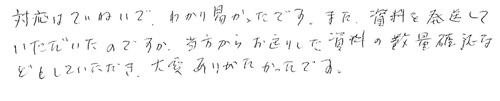 対応はていねいで、わかり易かったです。また、資料を発送して
いただいたのですが、当方からお送りした資料の数量確認な
どもしていただき、大変ありがたかったです。